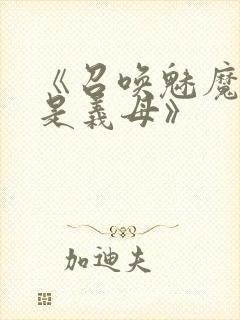 《召唤魅魔
是义母》
加迪夫